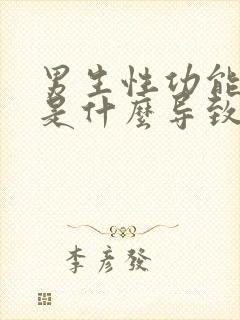 男生性功能
是什麼导致
李彦發